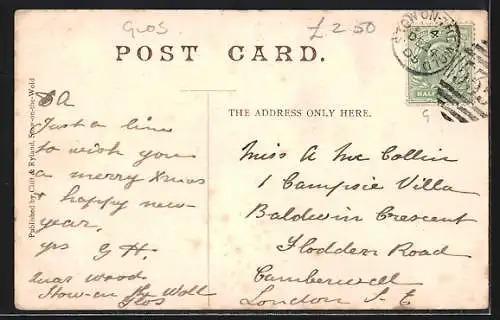 GLOS
£2.50
POST CARD.
STOW-ON-THE-WOLD
HALF
THE ADDRESS ONLY HERE.
Published by Clift & Ryland, Stow-on-the-Wold
D A
Just a line
to wish you
a merry Xmas
& happy new-
year.
yrs G H.
wood
Stow-on the Woll
Glos
Miss A Mc Collin
1 Campsie Villa
Baldwin Crescent
Flodden Road
Camberwell
London S. E